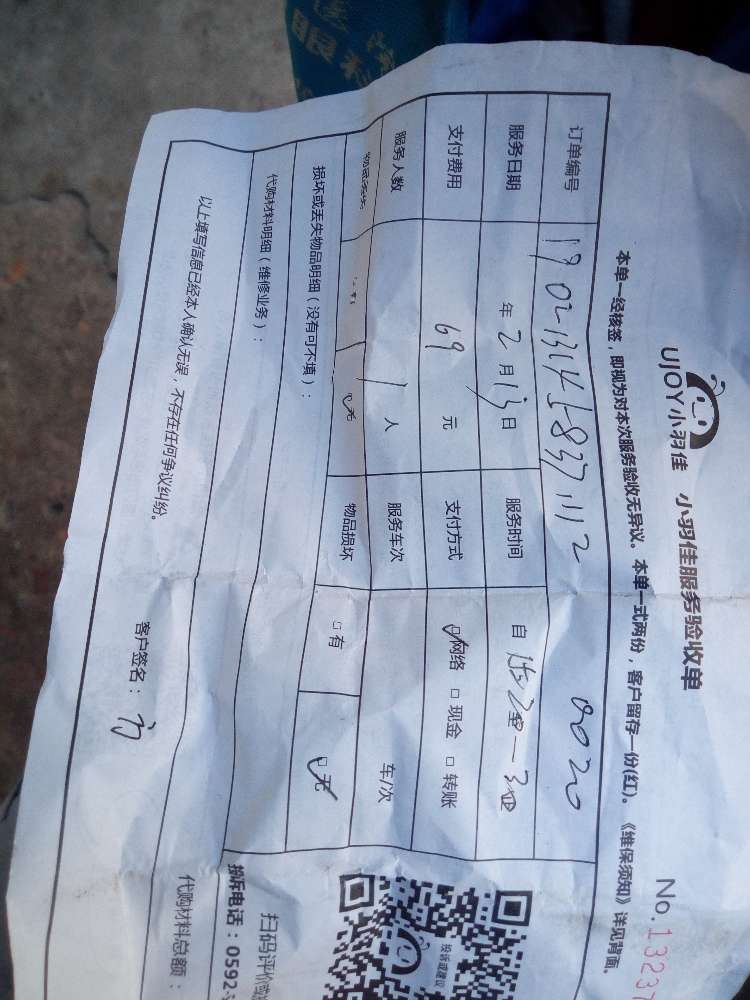 UJOY小羽佳 小羽佳服务验收单
No.13237
本单一经核签，即视为对本次服务验收无异议。本单一式两份，客户留存一份(红)。《维保须知》详见背面。
订单编号
服务日期 年 2 月 13 日 服务时间 自
支付费用 69 元 支付方式 网络 □ 现金 □ 转账
服务人数 1 人 服务车次 车/次
无 物品损坏 □ 有 □ 无
损坏或丢失物品明细（没有可不填）：
代购材料明细（维修业务）：
代购材料总额：
以上填写信息已经本人确认无误，不存在任何争议纠纷。
客户签名：
投诉或建议
扫码评价
投诉电话：0592-
眼科